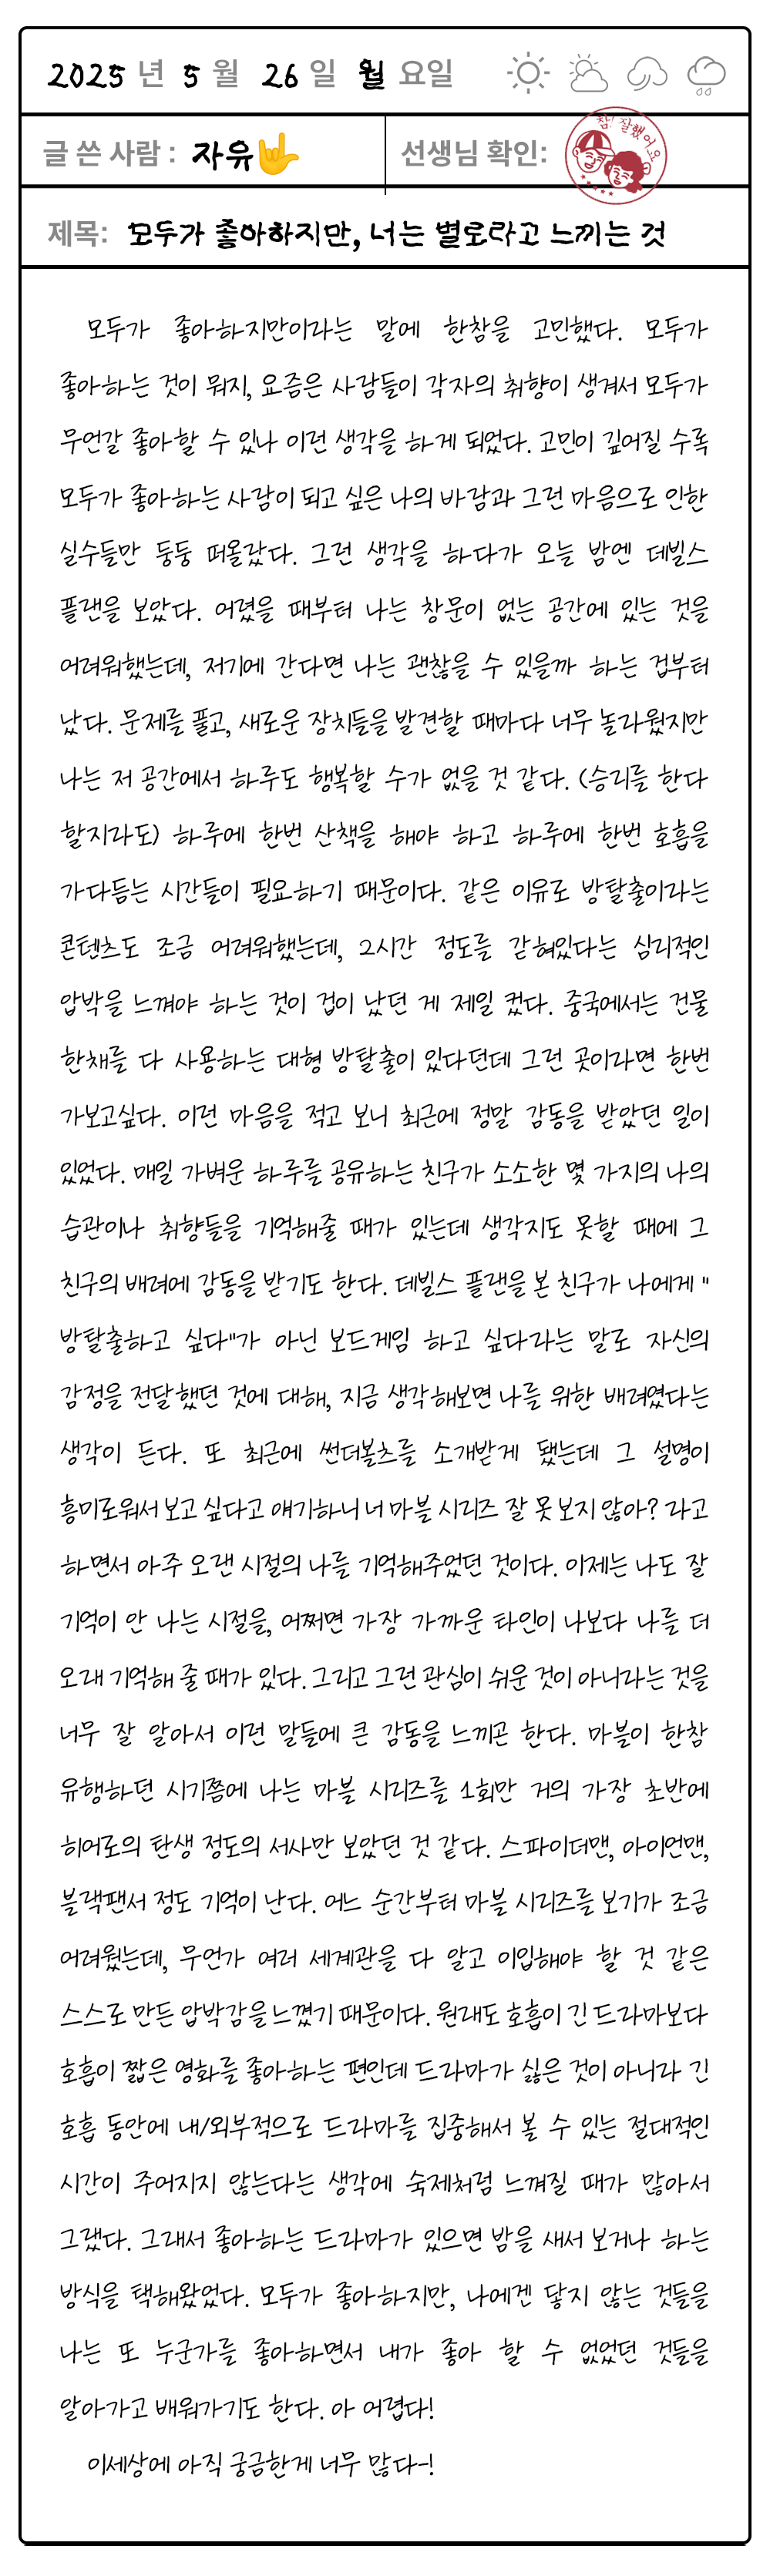 2025 년 5 월 26 일 월 요일
글 쓴 사람 : 자유🤟
선생님 확인:
참! 잘했어요
제목: 모두가 좋아하지만, 너는 별로라고 느끼는 것
모두가 좋아하지만이라는 말에 한참을 고민했다. 모두가
좋아하는 것이 뭐지, 요즘은 사람들이 각자의 취향이 생겨서 모두가
무언갈 좋아할 수 있나 이런 생각을 하게 되었다. 고민이 깊어질 수록
모두가 좋아하는 사람이 되고 싶은 나의 바람과 그런 마음으로 인한
실수들만 둥둥 떠올랐다. 그런 생각을 하다가 오늘 밤엔 데빌스
플랜을 보았다. 어렸을 때부터 나는 창문이 없는 공간에 있는 것을
어려워했는데, 저기에 간다면 나는 괜찮을 수 있을까 하는 겁부터
났다. 문제를 풀고, 새로운 장치들을 발견할 때마다 너무 놀라웠지만
나는 저 공간에서 하루도 행복할 수가 없을 것 같다. (승리를 한다
할지라도) 하루에 한번 산책을 해야 하고 하루에 한번 호흡을
가다듬는 시간들이 필요하기 때문이다. 같은 이유로 방탈출이라는
콘텐츠도 조금 어려워했는데, 2시간 정도를 갇혀있다는 심리적인
압박을 느껴야 하는 것이 겁이 났던 게 제일 컸다. 중국에서는 건물
한채를 다 사용하는 대형 방탈출이 있다던데 그런 곳이라면 한번
가보고싶다. 이런 마음을 적고 보니 최근에 정말 감동을 받았던 일이
있었다. 매일 가벼운 하루를 공유하는 친구가 소소한 몇 가지의 나의
습관이나 취향들을 기억해줄 때가 있는데 생각지도 못할 때에 그
친구의 배려에 감동을 받기도 한다. 데빌스 플랜을 본 친구가 나에게 "
방탈출하고 싶다"가 아닌 보드게임 하고 싶다라는 말로 자신의
감정을 전달했던 것에 대해, 지금 생각해보면 나를 위한 배려였다는
생각이 든다. 또 최근에 썬더볼츠를 소개받게 됐는데 그 설명이
흥미로워서 보고 싶다고 얘기하니 너 마블 시리즈 잘 못 보지 않아? 라고
하면서 아주 오랜 시절의 나를 기억해주었던 것이다. 이제는 나도 잘
기억이 안 나는 시절을, 어쩌면 가장 가까운 타인이 나보다 나를 더
오래 기억해 줄 때가 있다. 그리고 그런 관심이 쉬운 것이 아니라는 것을
너무 잘 알아서 이런 말들에 큰 감동을 느끼곤 한다. 마블이 한참
유행하던 시기쯤에 나는 마블 시리즈를 1회만 거의 가장 초반에
히어로의 탄생 정도의 서사만 보았던 것 같다. 스파이더맨, 아이언맨,
블랙팬서 정도 기억이 난다. 어느 순간부터 마블 시리즈를 보기가 조금
어려웠는데, 무언가 여러 세계관을 다 알고 이입해야 할 것 같은
스스로 만든 압박감을 느꼈기 때문이다. 원래도 호흡이 긴 드라마보다
호흡이 짧은 영화를 좋아하는 편인데 드라마가 싫은 것이 아니라 긴
호흡 동안에 내/외부적으로 드라마를 집중해서 볼 수 있는 절대적인
시간이 주어지지 않는다는 생각에 숙제처럼 느껴질 때가 많아서
그랬다. 그래서 좋아하는 드라마가 있으면 밤을 새서 보거나 하는
방식을 택해왔었다. 모두가 좋아하지만, 나에겐 닿지 않는 것들을
나는 또 누군가를 좋아하면서 내가 좋아 할 수 없었던 것들을
알아가고 배워가기도 한다. 아 어렵다!
이세상에 아직 궁금한게 너무 많다-!